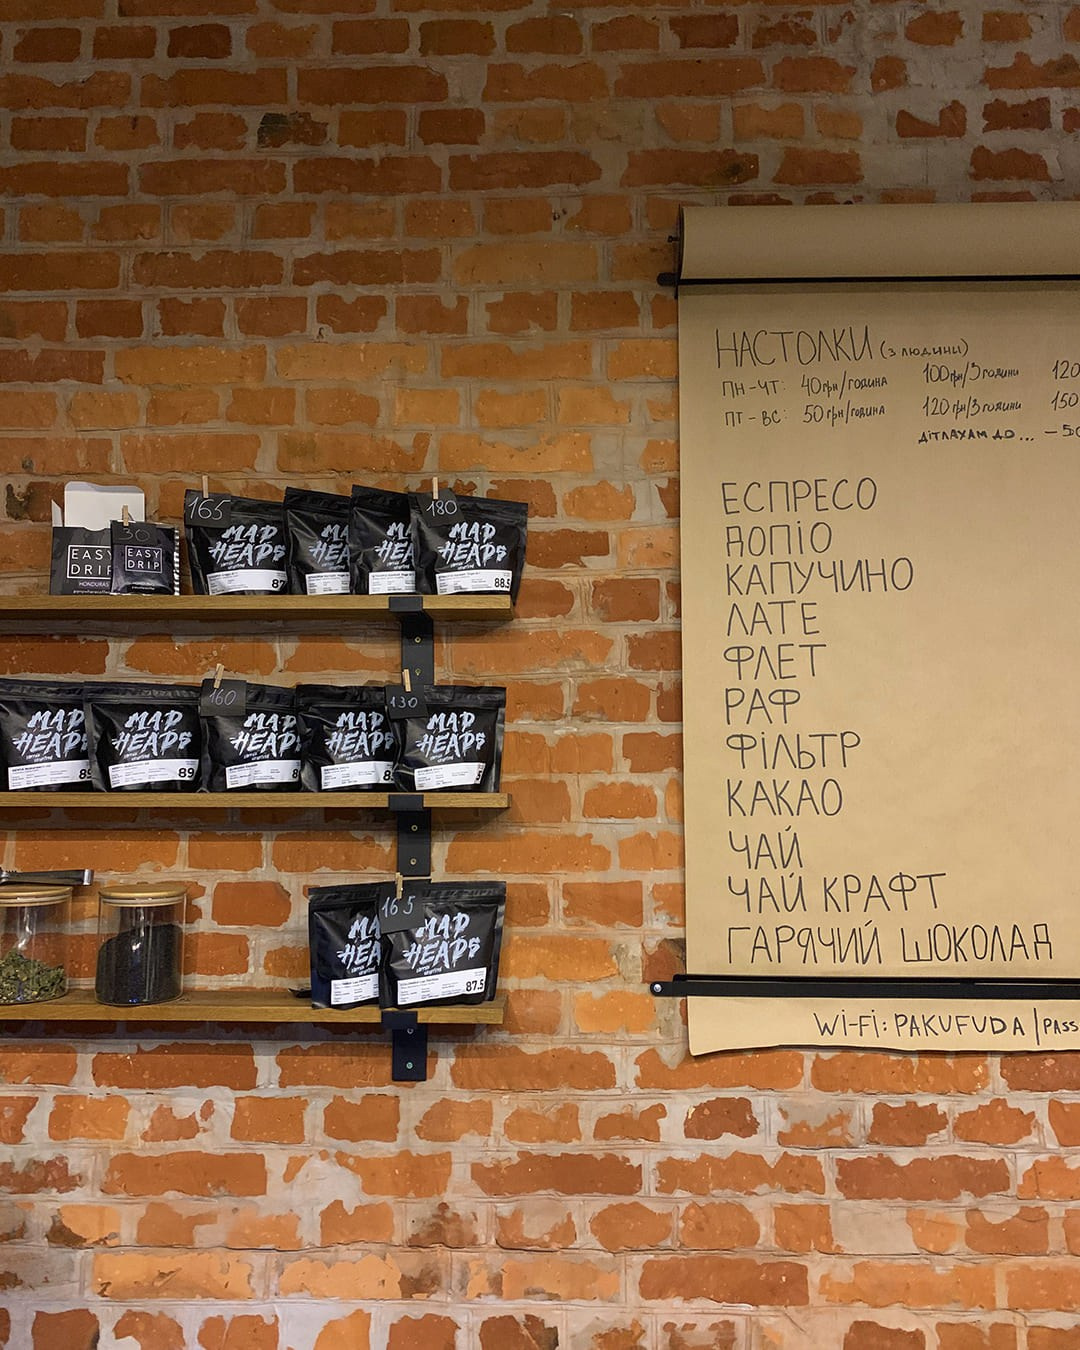 НАСТОЛКИ (з людини)
ПН-ЧТ: 40грн/година 100грн/3години 120
ПТ-ВС: 50грн/година 120грн/3години 150
ДІТЛАХАМ ДО... -50
ЕСПРЕСО
ДОПІО
КАПУЧИНО
ЛАТЕ
ФЛЕТ
РАФ
ФІЛЬТР
КАКАО
ЧАЙ
ЧАЙ КРАФТ
ГАРЯЧИЙ ШОКОЛАД
Wi-Fi: PAKUFUDA | PASS
EASY DRIP
HONDURAS
30
EASY
DRIP
165
MAD
HEADS
87
MAD
HEADS
MAD
HEADS
180
MAD
HEADS
88.5
MAD
HEADS
89
MAD
HEADS
89
160
MAD
HEADS
8
MAD
HEADS
8
130
MAD
HEADS
MAD
HEADS
165
MAD
HEADS
87.5